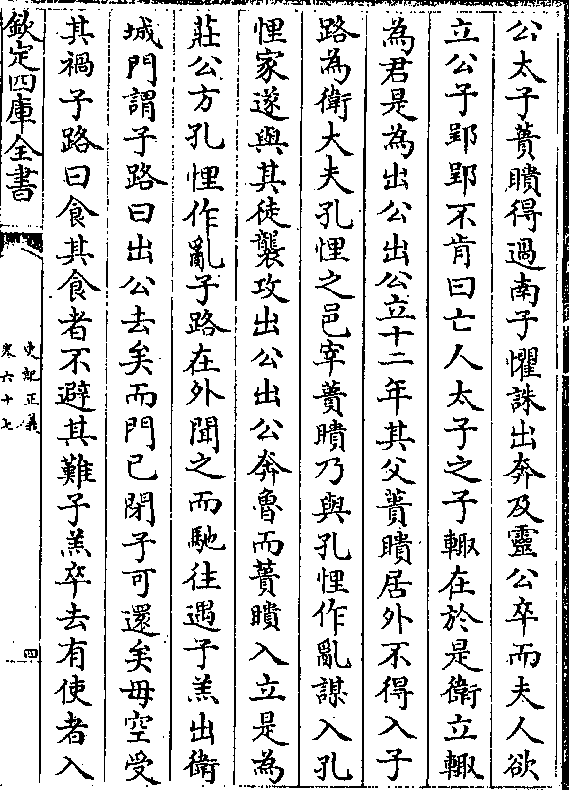 公太子蕢聵得過南子懼誅出奔及靈公卒而夫人欲
立公子郢郢不肯曰亡人太子之子輙在於是衛立輙
為君是為出公出公立十二年其父蕢聵居外不得入子
路為衛大夫孔悝之邑宰蕢聵乃與孔悝作亂謀入孔
悝家遂與其徒襲攻出公出公奔魯而蕢聵入立是為
莊公方孔悝作亂子路在外聞之而馳往遇子羔出衛
城門謂子路曰出公去矣而門已閉子可還矣毋空受
其禍子路曰食其食者不避其難子羔卒去有使者入
欽定四庫全書
史記正義
卷六十七
四